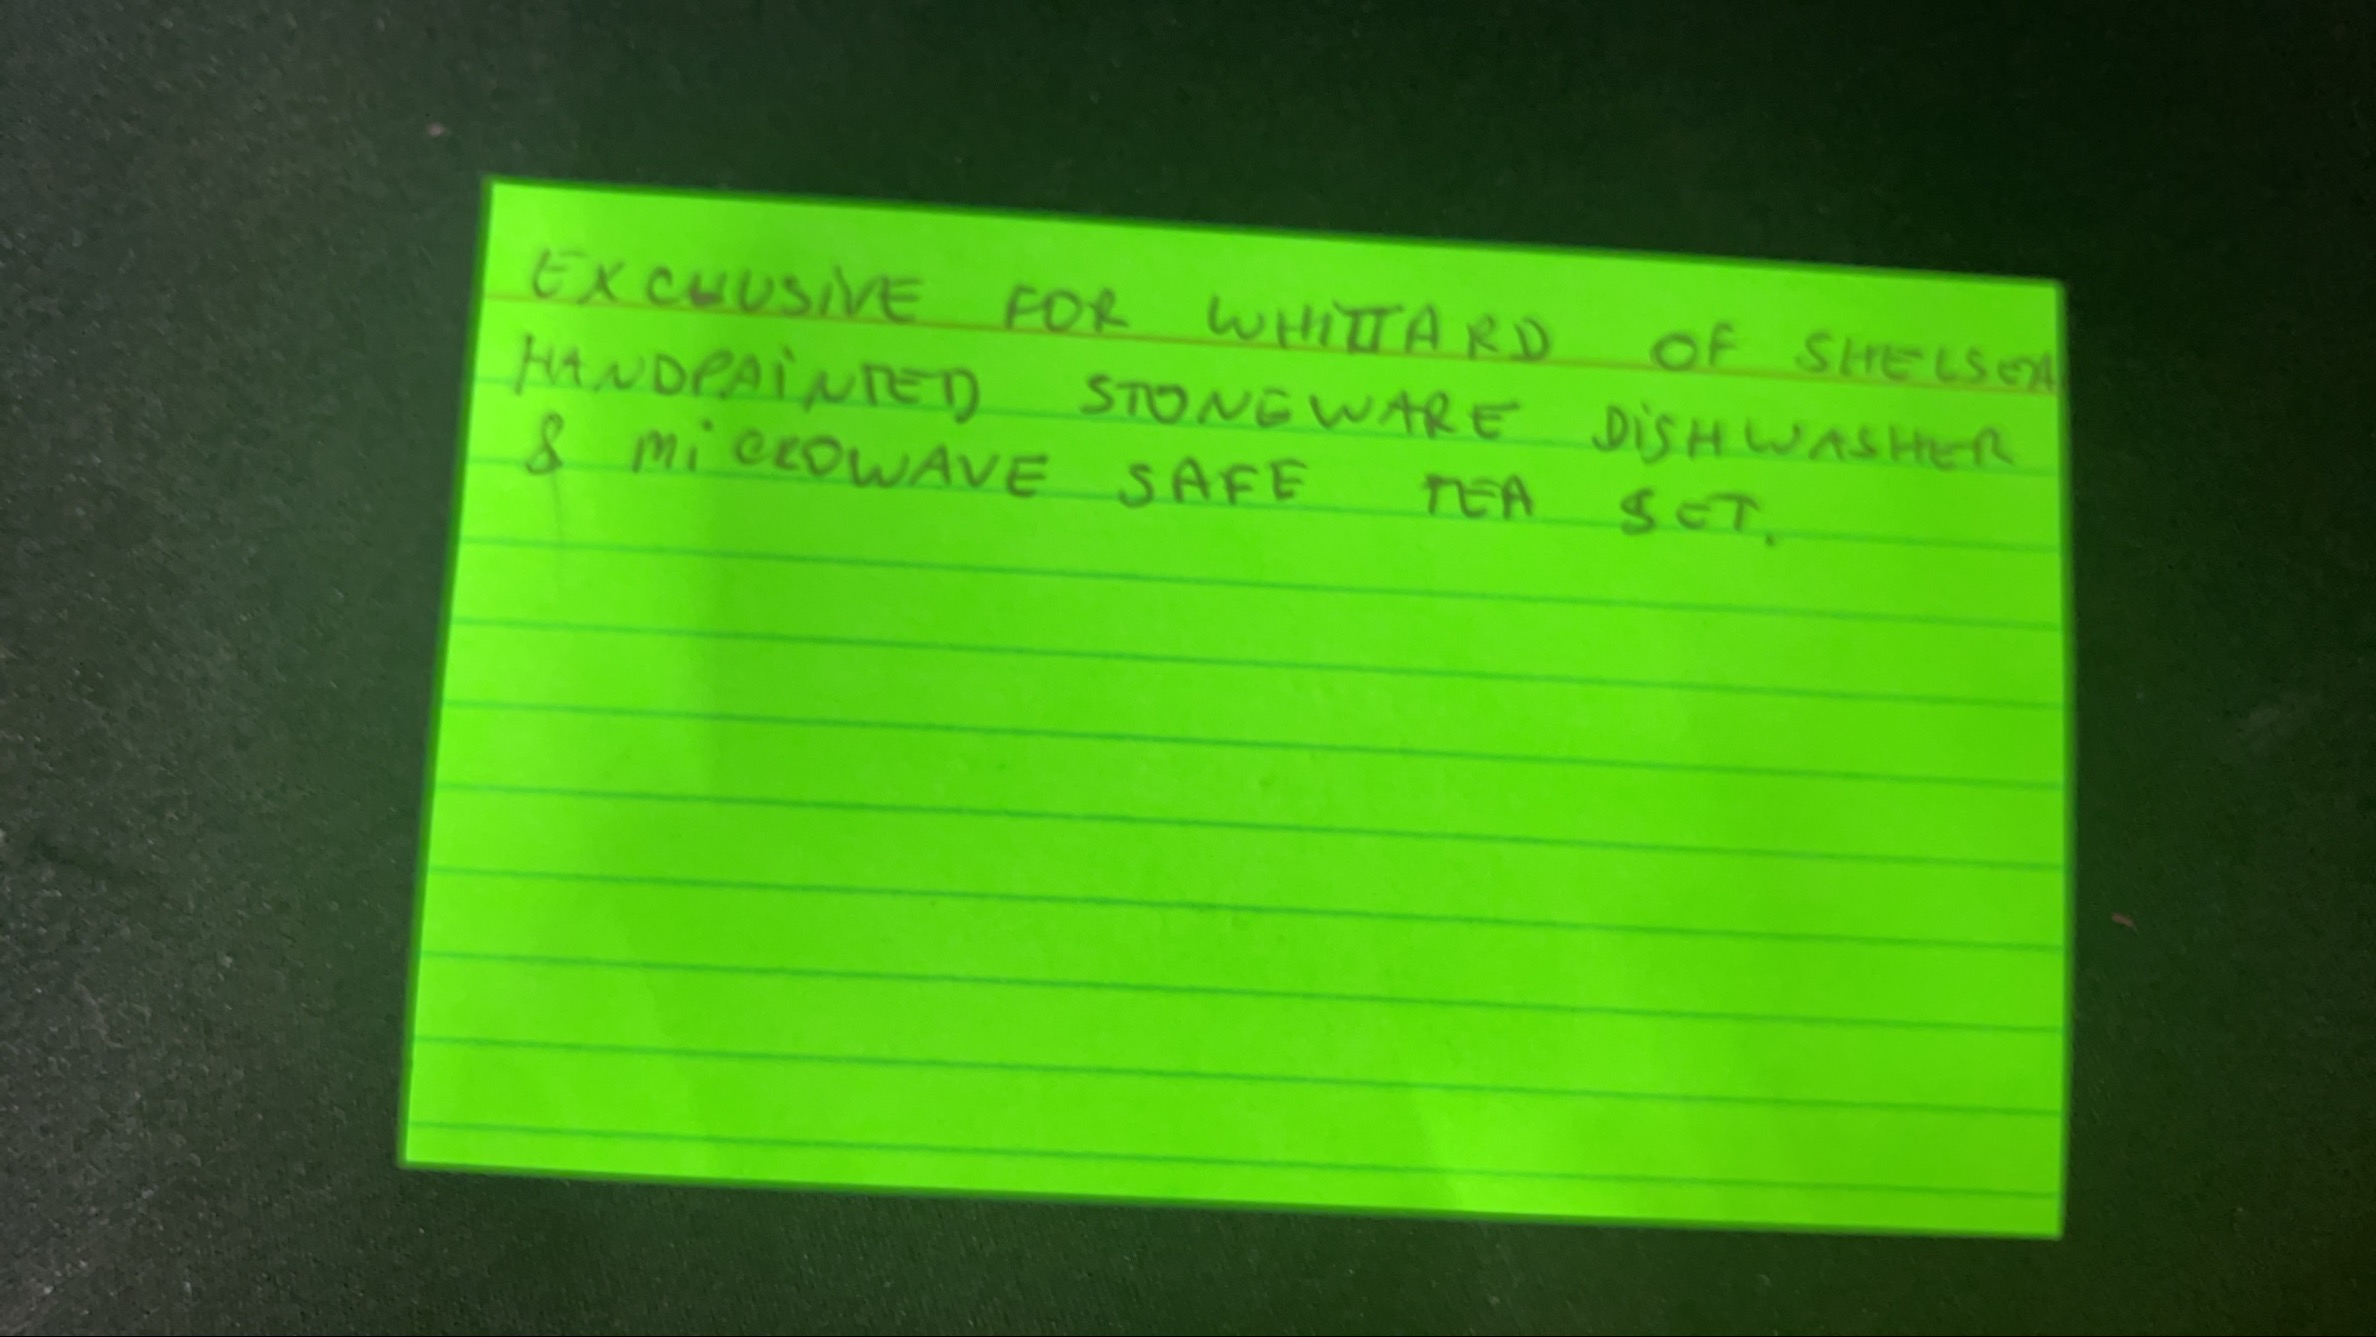 EXCLUSIVE FOR WHITTARD OF SHELSEA
HANDPAINTED STONEWARE DISHWASHER
& MiCROWAVE SAFE TEA SET.